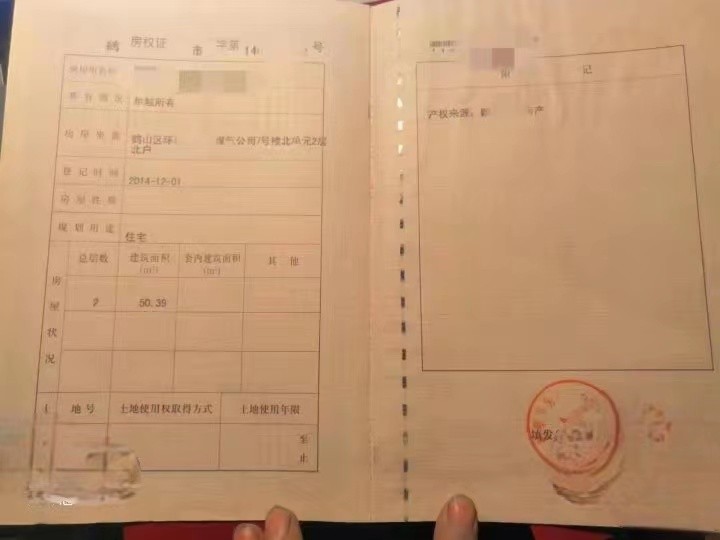 鹤 房权证 市 字第 14 号
房屋所有权人
共有情况 单独所有
房屋坐落 鹤山区环 煤气公司7号楼北单元2层
北户
登记时间 2014-12-01
房屋性质
规划用途 住宅
房屋状况
总层数 建筑面积(m²) 套内建筑面积(m²) 其 他
2 50.39
土 地号 土地使用权取得方式 土地使用年限
至
止
附 记
产权来源: 产
填发